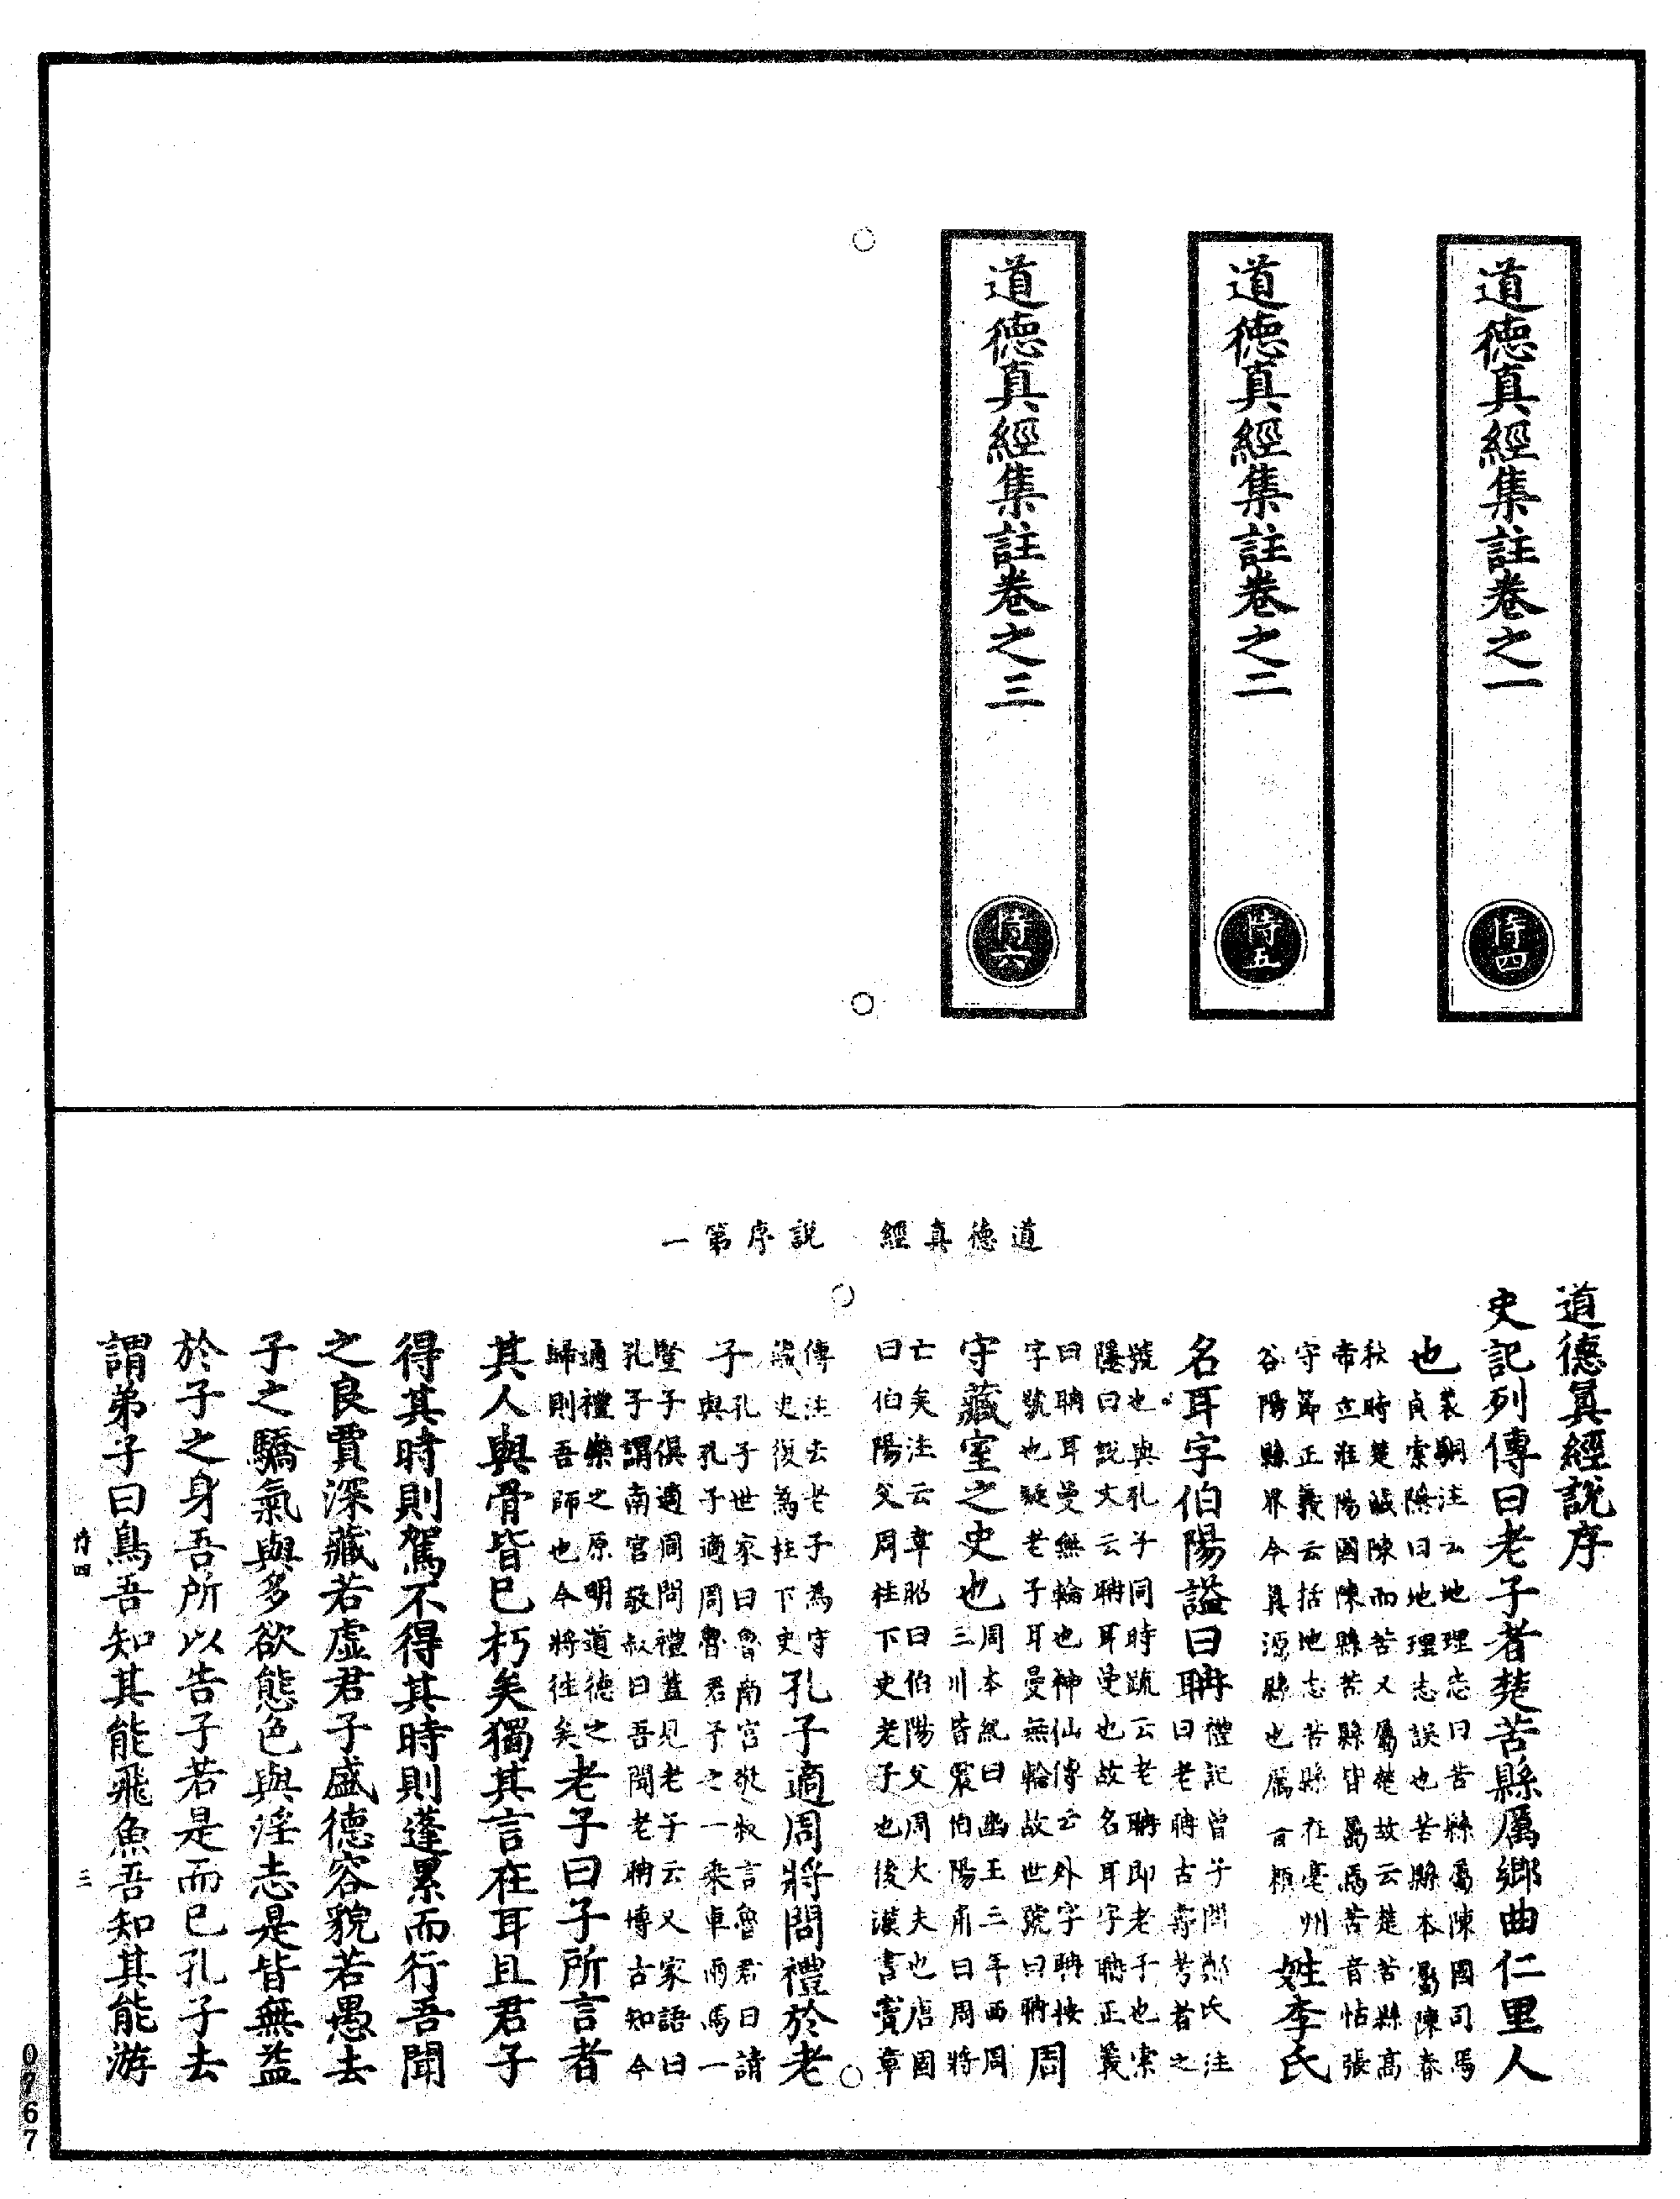 道德真經集註卷之一
侍四
道德真經集註卷之二
侍五
道德真經集註卷之三
侍六
道德真經　說序第一
道德真經說序
史記列傳曰老子者楚苦縣厲鄉曲仁里人
也裴駰注云地理志曰苦縣屬陳國司馬
貞索隱曰地理志誤也苦縣本屬陳春
秋時楚滅陳而苦又屬楚故云楚苦縣高
帝立淮陽國陳縣苦縣皆屬焉苦音怙張
守節正義云括地志苦縣在亳州
谷陽縣界今真源縣也厲音賴姓李氏
名耳字伯陽謚曰聃禮記曾子問鄭氏注
曰老聃古壽考者之
號也與孔子同時疏云老聃即老子也索
隱曰說文云聃耳曼也故名耳字聃正義
曰聃耳曼無輪也神仙傳云外字聃按
字號也疑老子耳曼無輪故世號曰聃周
守藏室之史也周本紀曰幽王二年西周
三川皆震伯陽甫曰周將
亡矣注云韋昭曰伯陽父周大夫也唐固
曰伯陽父周柱下史老子也後漢書竇章
傳注云老子為守
藏史復為柱下史孔子適周將問禮於老
子孔子世家曰魯南宮敬叔言魯君曰請
與孔子適周魯君予之一乘車兩馬一
豎子俱適周問禮蓋見老子云又家語曰
孔子謂南宮敬叔曰吾聞老聃博古知今
通禮樂之原明道德之
歸則吾師也今將往矣老子曰子所言者
其人與骨皆已朽矣獨其言在耳且君子
得其時則駕不得其時則蓬累而行吾聞
之良賈深藏若虛君子盛德容貌若愚去
子之驕氣與多欲態色與淫志是皆無益
於子之身吾所以告子若是而已孔子去
謂弟子曰鳥吾知其能飛魚吾知其能游
侍四
三
0767